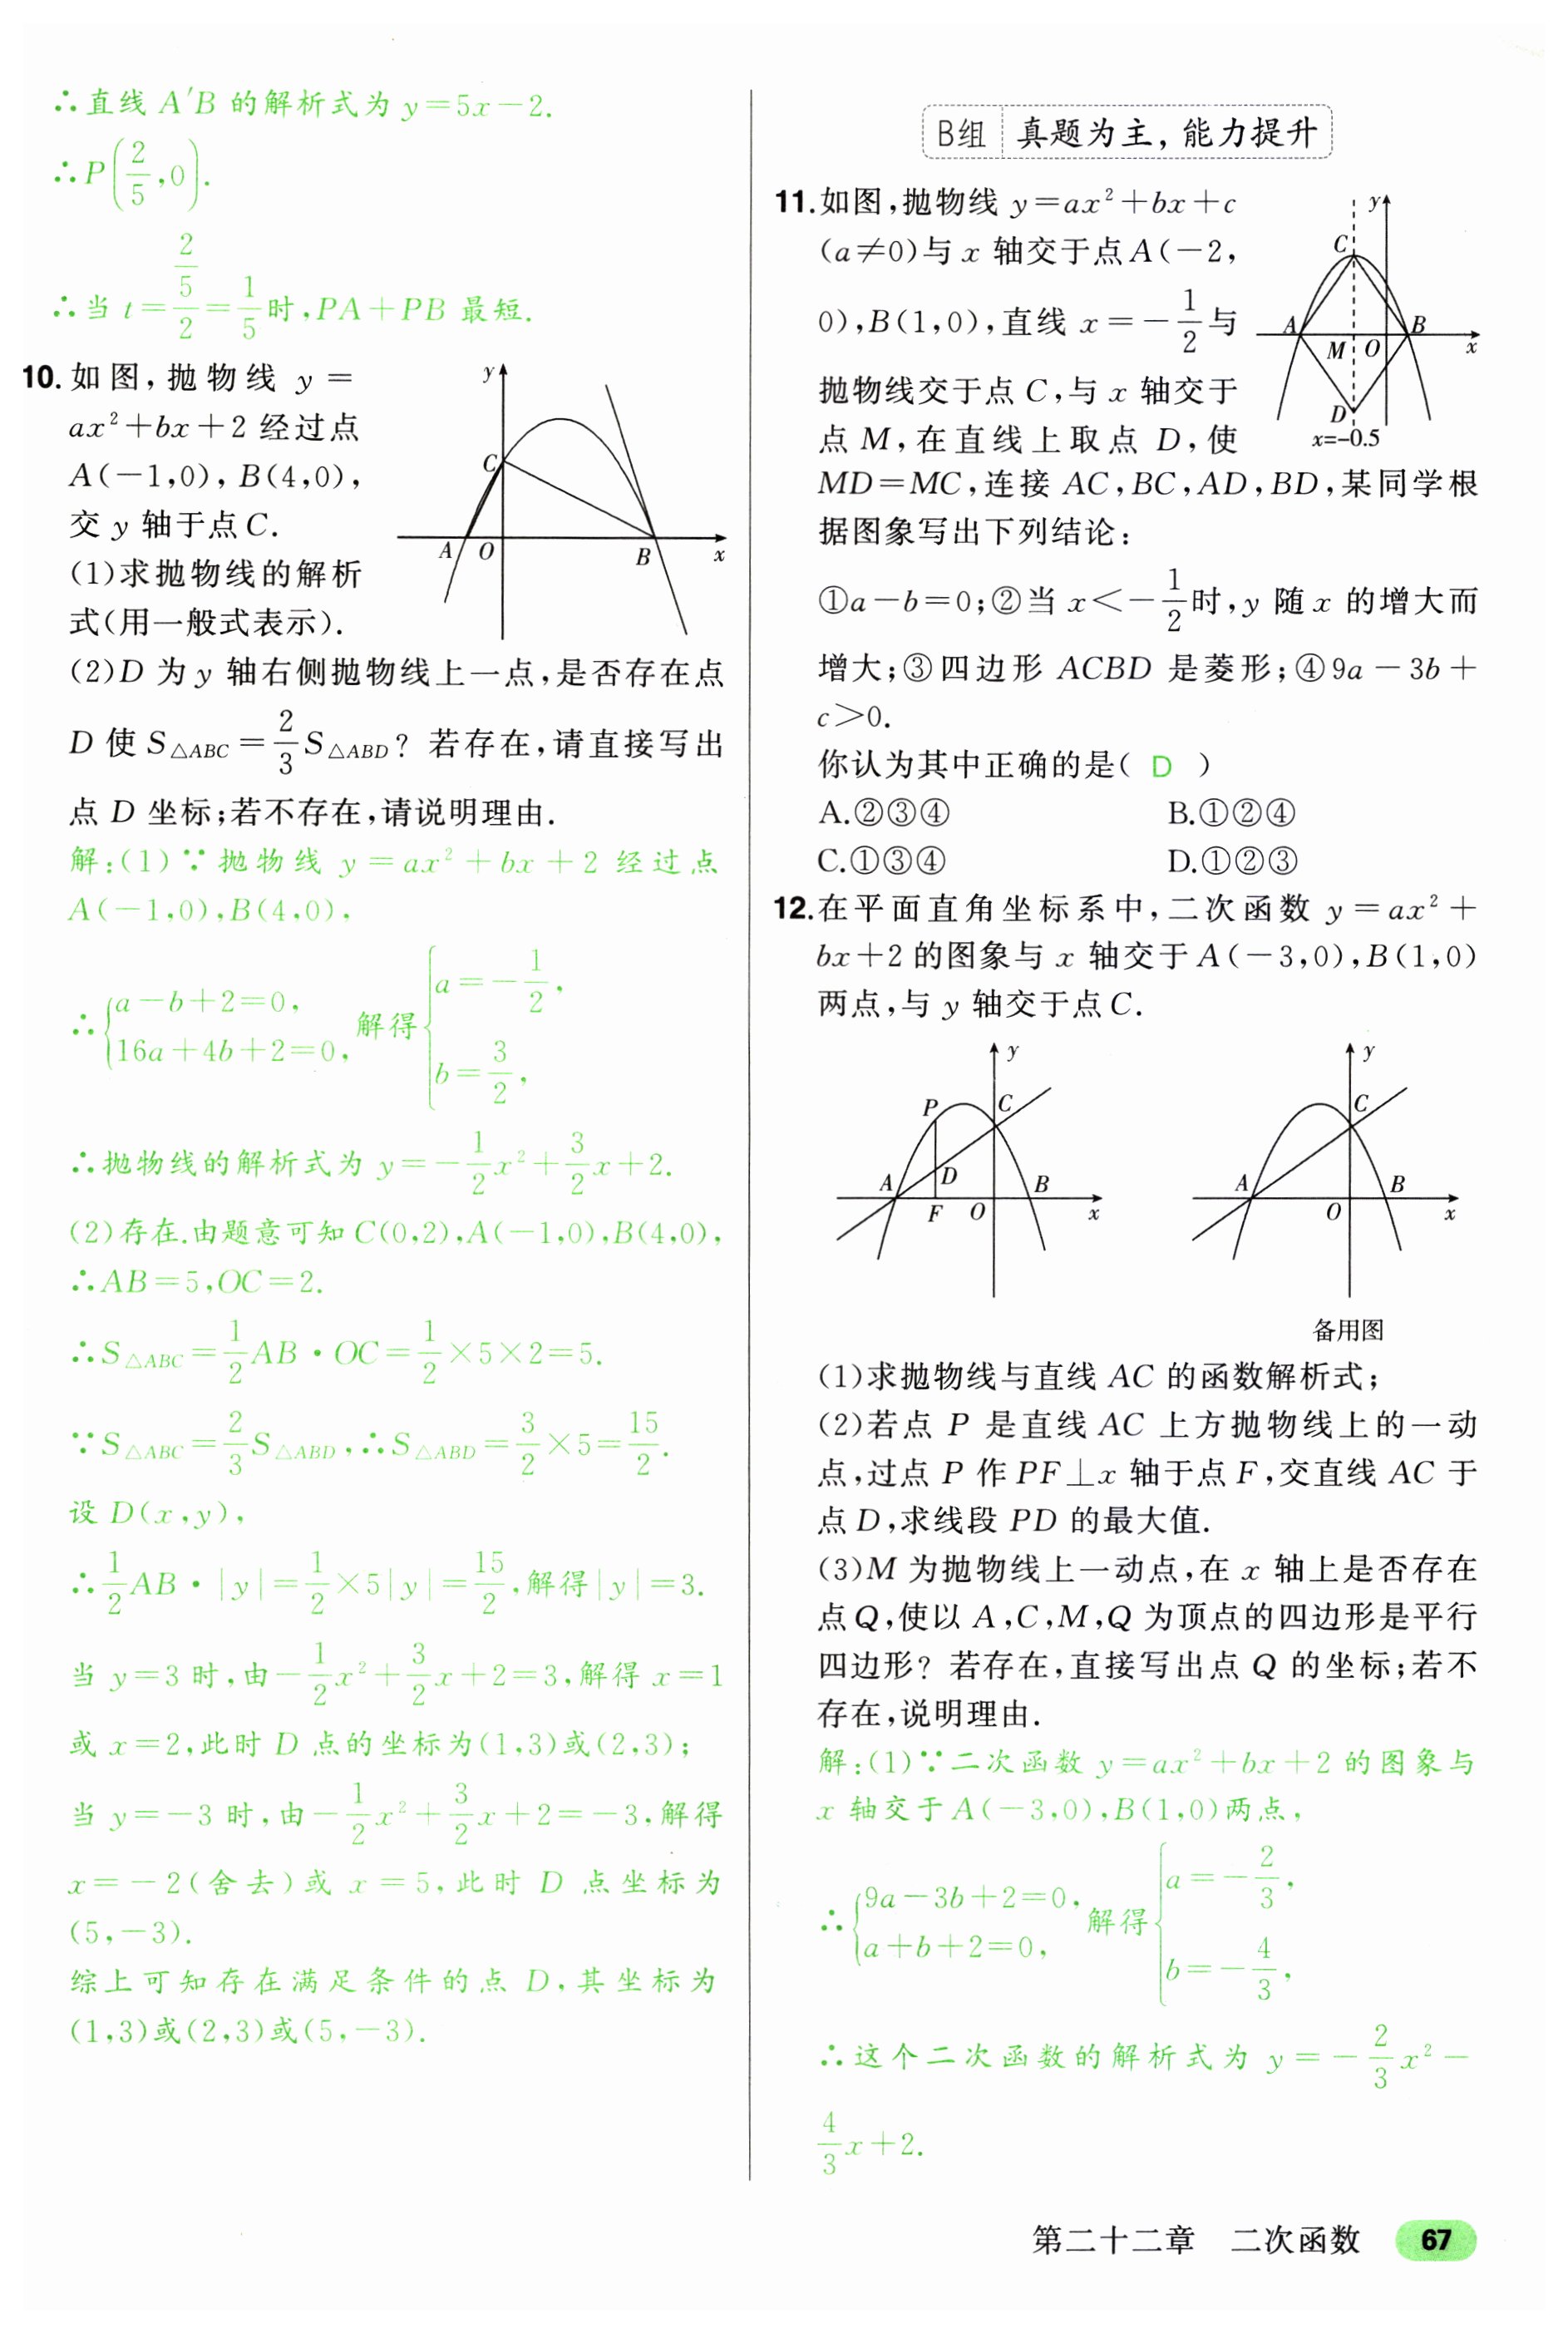 ∴直线 A′B 的解析式为 y=5x-2.
∴P(2/5,0).
∴当 t=(2/5)/2=1/5时,PA+PB 最短.
10.如图,抛物线 y=
ax²+bx+2 经过点
A(-1,0),B(4,0),
交 y 轴于点C.
(1)求抛物线的解析
式(用一般式表示).
y
C
A
O
B
x
(2)D 为 y 轴右侧抛物线上一点,是否存在点
D 使 S△ABC=2/3S△ABD? 若存在,请直接写出
点 D 坐标;若不存在,请说明理由.
解:(1)∵抛物线 y=ax²+bx+2 经过点
A(-1,0),B(4,0),
∴{a-b+2=0, 16a+4b+2=0, 解得{a=-1/2, b=3/2,
∴抛物线的解析式为 y=-1/2x²+3/2x+2.
(2)存在.由题意可知C(0,2),A(-1,0),B(4,0),
∴AB=5,OC=2.
∴S△ABC=1/2AB·OC=1/2×5×2=5.
∵S△ABC=2/3S△ABD,∴S△ABD=3/2×5=15/2.
设 D(x,y),
∴1/2AB·|y|=1/2×5|y|=15/2,解得|y|=3.
当 y=3 时,由-1/2x²+3/2x+2=3,解得 x=1
或 x=2,此时 D 点的坐标为(1,3)或(2,3);
当 y=-3 时,由-1/2x²+3/2x+2=-3,解得
x=-2(舍去)或 x=5,此时 D 点坐标为
(5,-3).
综上可知存在满足条件的点 D,其坐标为
(1,3)或(2,3)或(5,-3).
B组 真题为主,能力提升
11.如图,抛物线 y=ax²+bx+c
(a≠0)与 x 轴交于点A(-2,
0),B(1,0),直线 x=-1/2与
抛物线交于点 C,与 x 轴交于
点 M,在直线上取点 D,使
y
C
A
B
M
O
x
D
x=-0.5
MD=MC,连接 AC,BC,AD,BD,某同学根
据图象写出下列结论:
①a-b=0;②当 x<-1/2时,y 随 x 的增大而
增大;③四边形 ACBD 是菱形;④9a-3b+
c>0.
你认为其中正确的是( D )
A.②③④ B.①②④
C.①③④ D.①②③
12.在平面直角坐标系中,二次函数 y=ax²+
bx+2 的图象与 x 轴交于A(-3,0),B(1,0)
两点,与 y 轴交于点C.
y
P
C
A
D
B
F
O
x
y
C
A
B
O
x
备用图
(1)求抛物线与直线 AC 的函数解析式;
(2)若点 P 是直线 AC 上方抛物线上的一动
点,过点 P 作 PF⊥x 轴于点F,交直线 AC 于
点 D,求线段 PD 的最大值.
(3)M 为抛物线上一动点,在 x 轴上是否存在
点Q,使以 A,C,M,Q 为顶点的四边形是平行
四边形? 若存在,直接写出点 Q 的坐标;若不
存在,说明理由.
解:(1)∵二次函数 y=ax²+bx+2 的图象与
x 轴交于A(-3,0),B(1,0)两点,
∴{9a-3b+2=0, a+b+2=0, 解得{a=-2/3, b=-4/3,
∴这个二次函数的解析式为 y=-2/3x²-
4/3x+2.
第二十二章 二次函数 67